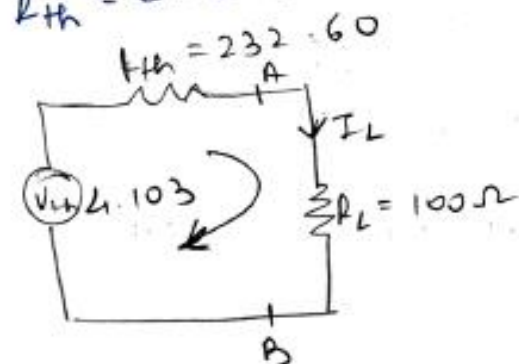 Rth =
Rth = 232.60
A
IL
Vth 4.103
RL = 100Ω
B